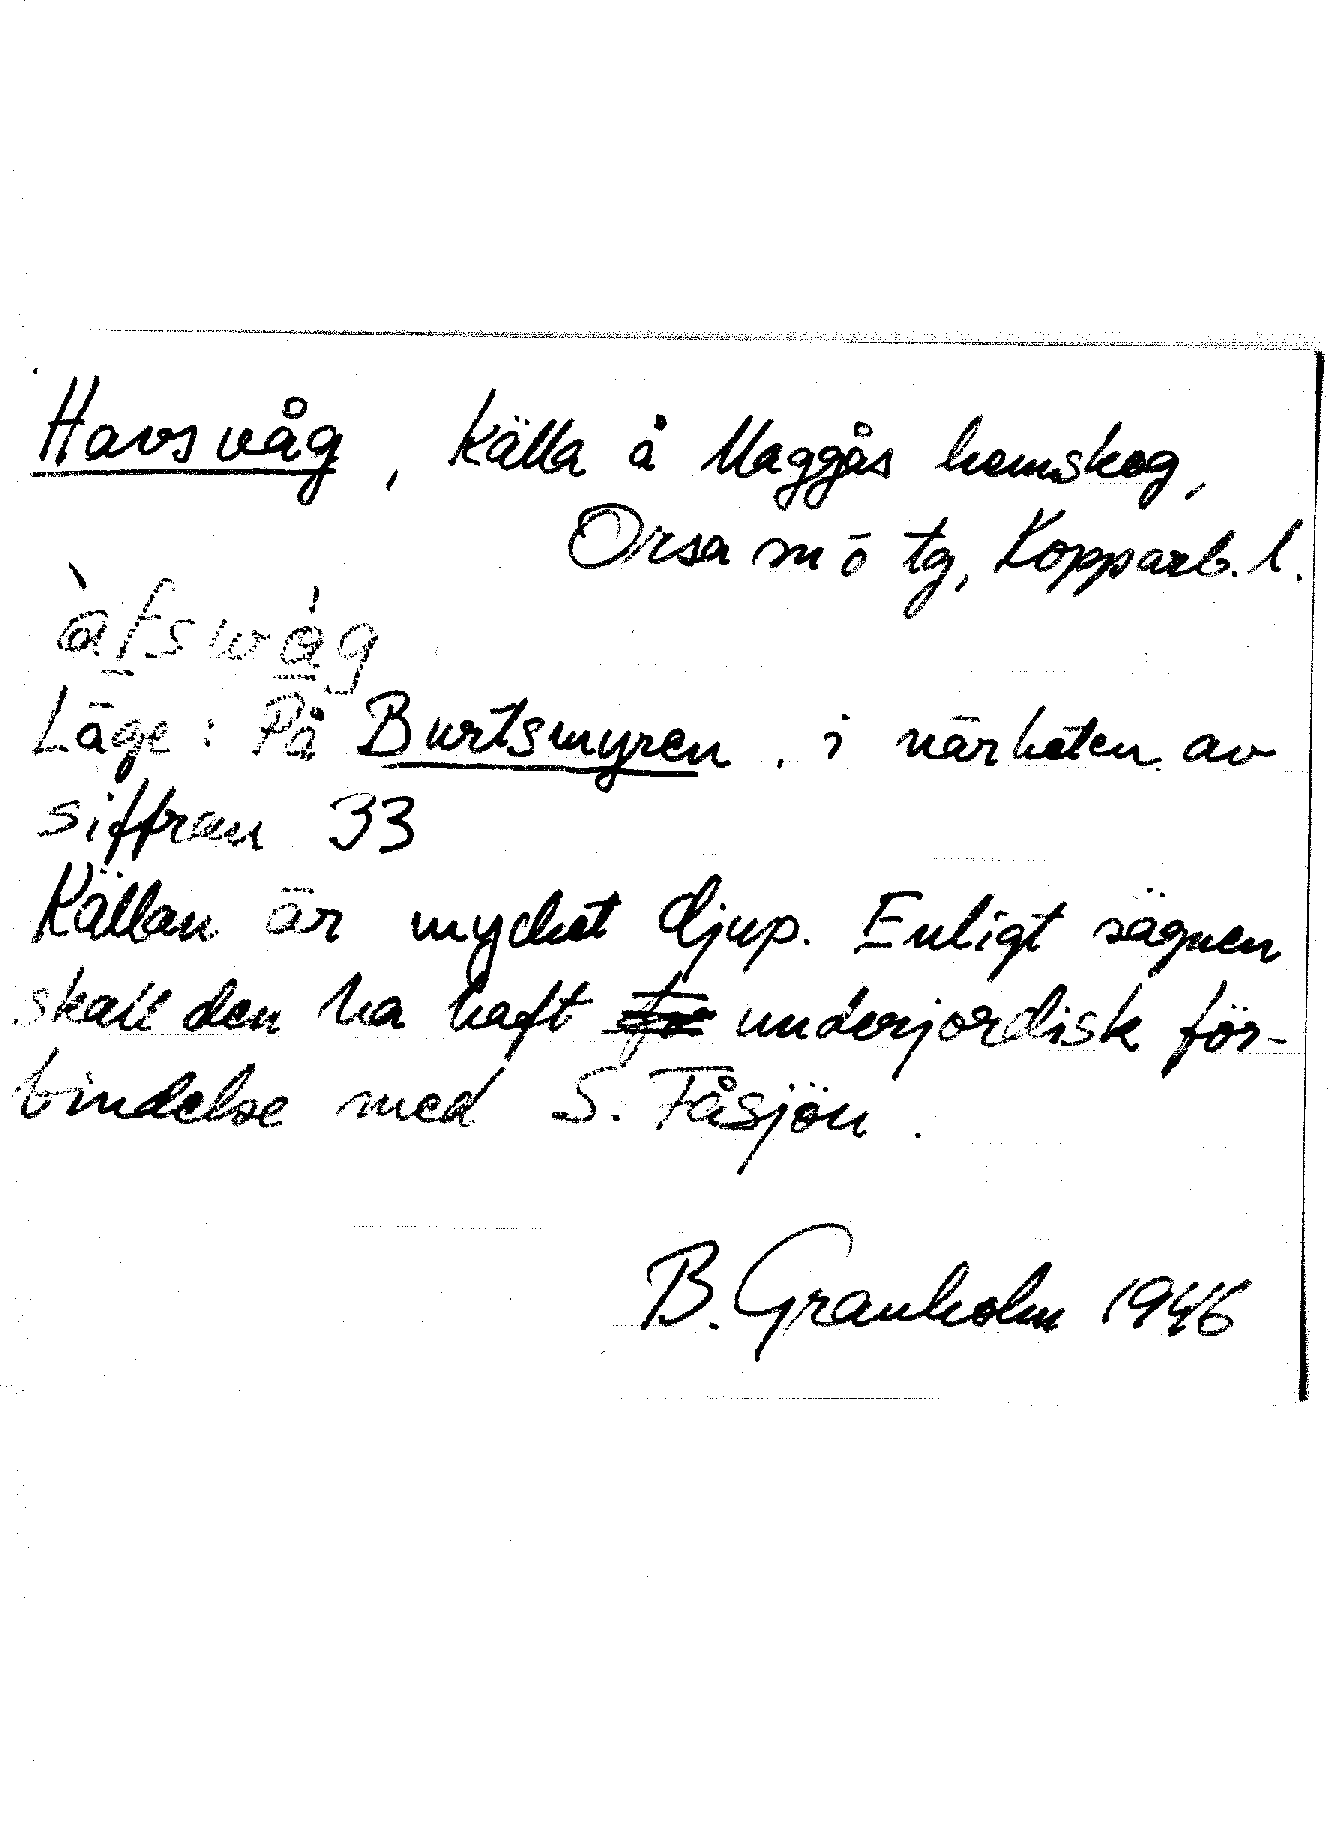 Havsvåg, källa å Maggås hemskog,
Orsa m ö tg, Kopparb. l.
àfswág
Läge: På Burtsmyren, i närheten av
siffran 33
Källan är mycket djup. Enligt sägnen
skall den ha haft underjordisk för-
bindelse med S. Fåsjön.
B. Granholm 1946